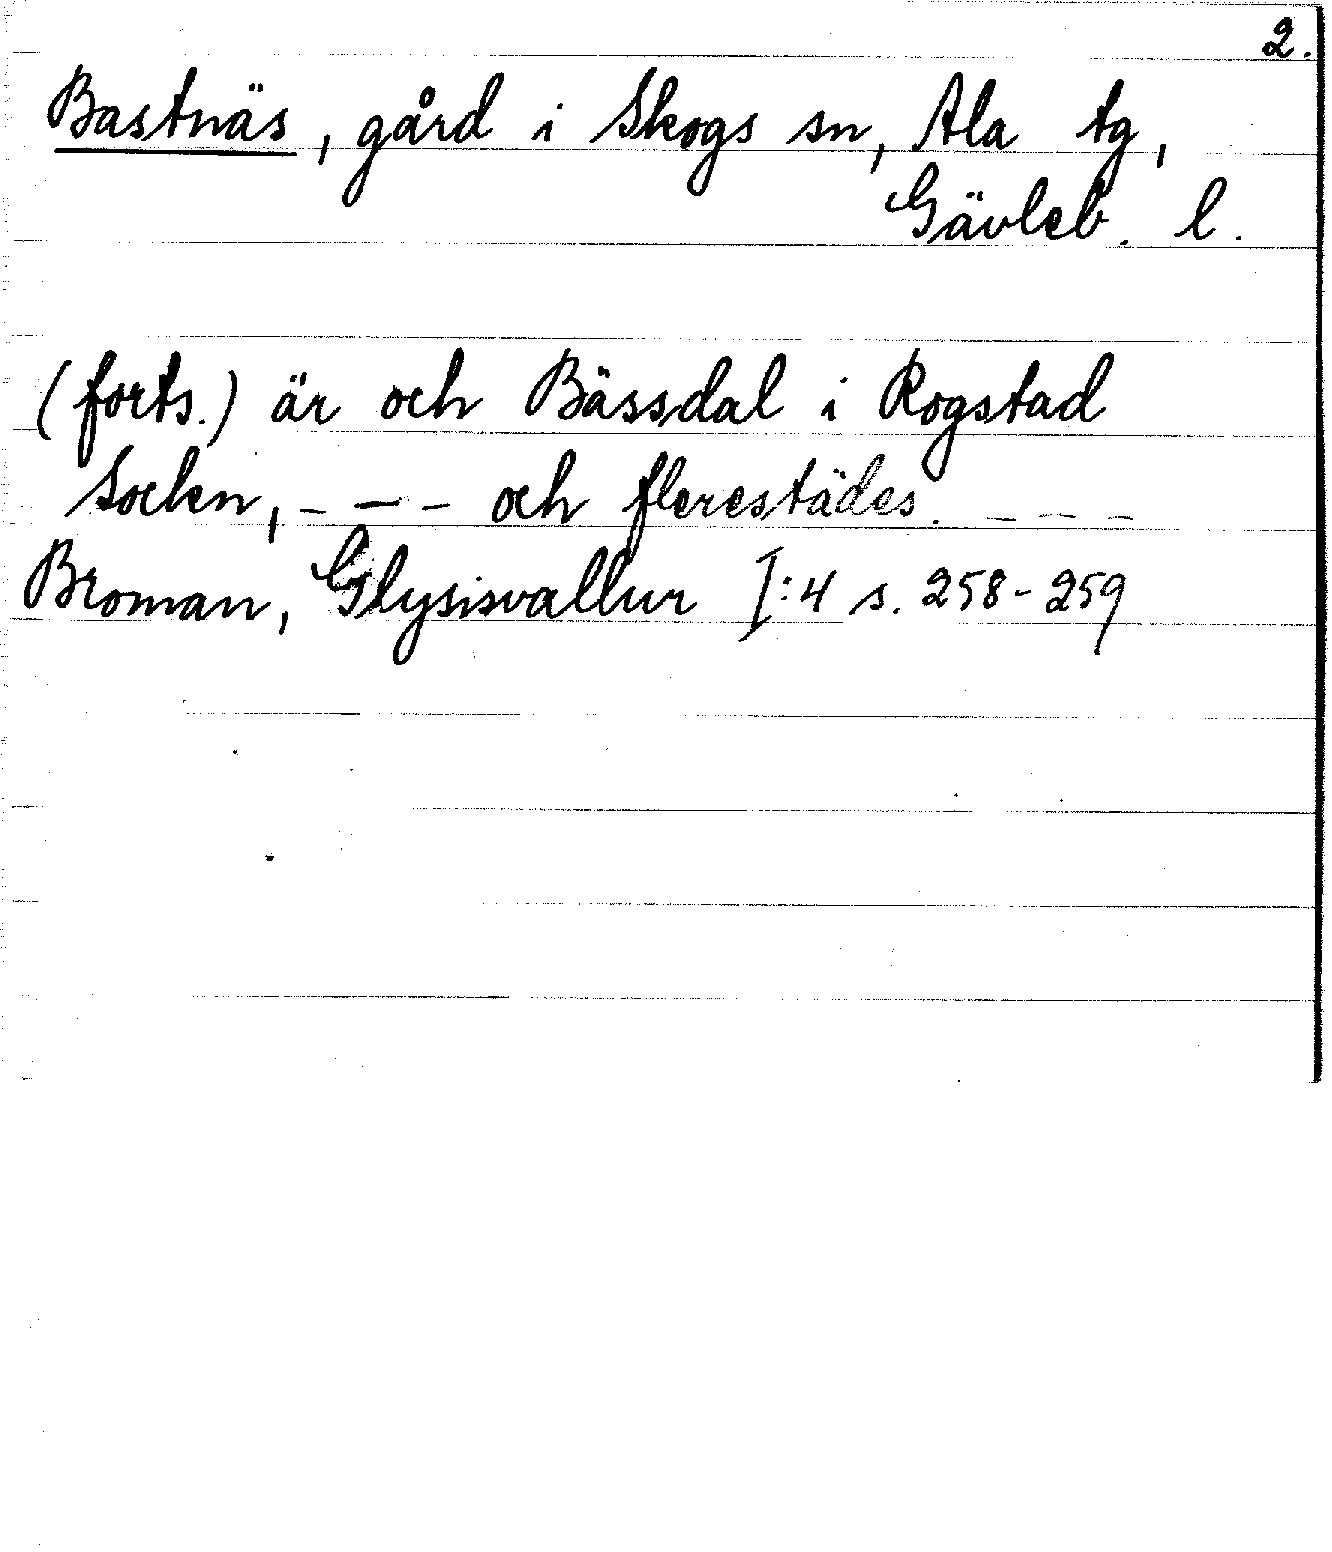 2.
Bastnäs, gård i Skogs sn, Ala tg,
Gävleb. l.
(forts.) är och Bässdal i Rogstad
Socken, - - - och flerestädes. - - -
Broman, Glysisvallur I:4 s. 258-259